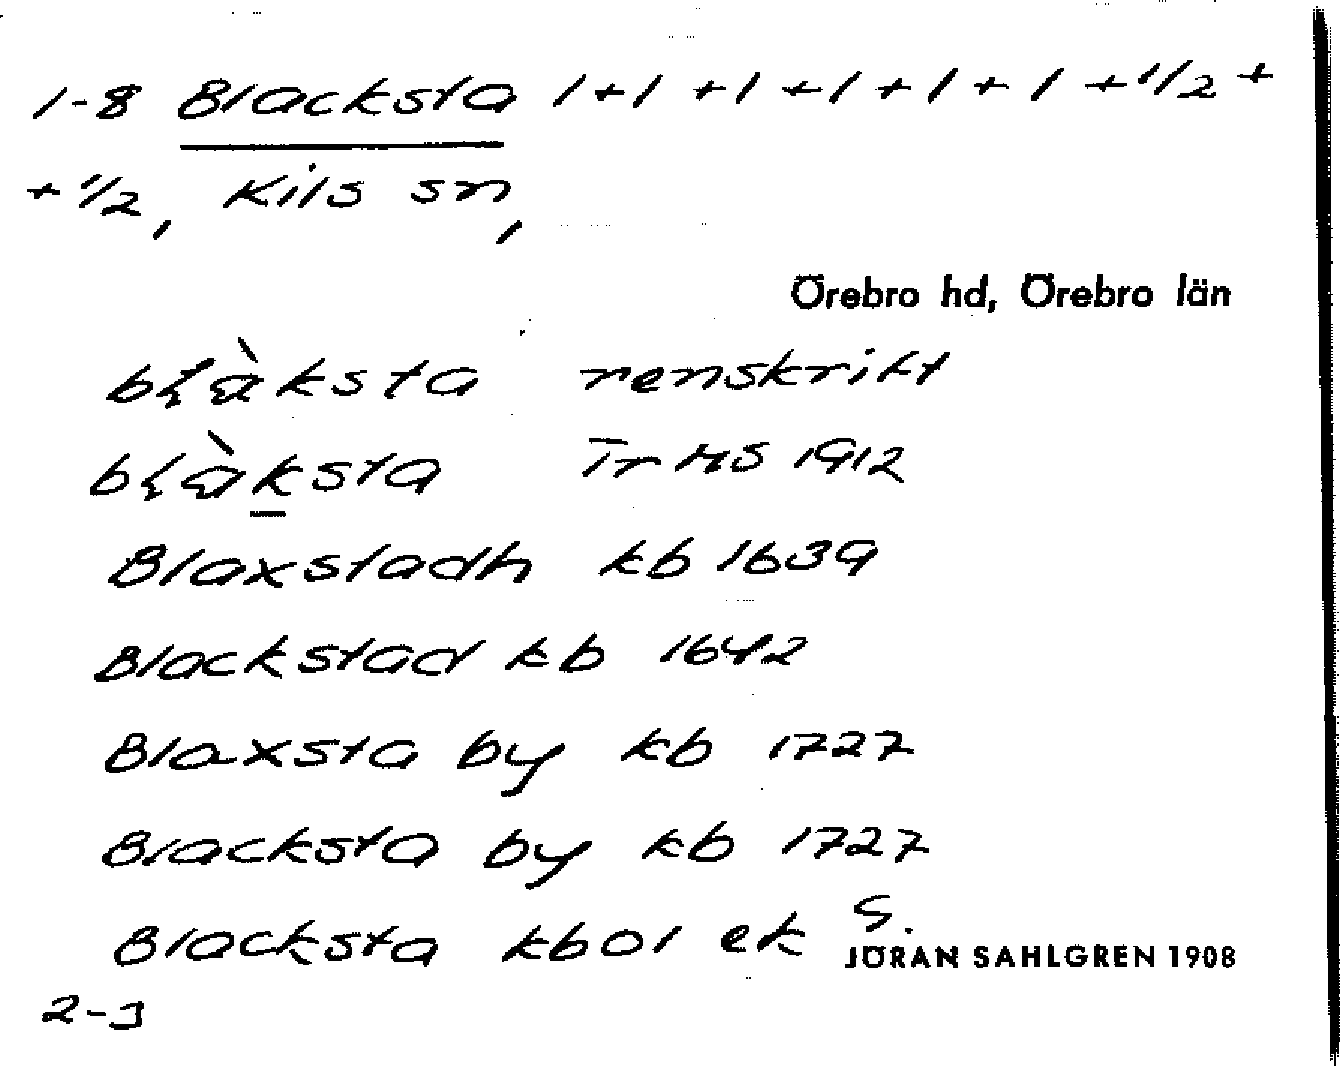 1-8 Blacksta 1+1 +1 +1 +1 +1 +1/2 +
+ 1/2, Kils sn,
Örebro hd, Örebro län
renskrift
Tr HS 1912
Blaxstadh kb 1639
Blackstad kb 1642
Blaxsta by kb 1727
Blacksta by kb 1727
Blacksta kbol ek S.
JÖRAN SAHLGREN 1908
2-3